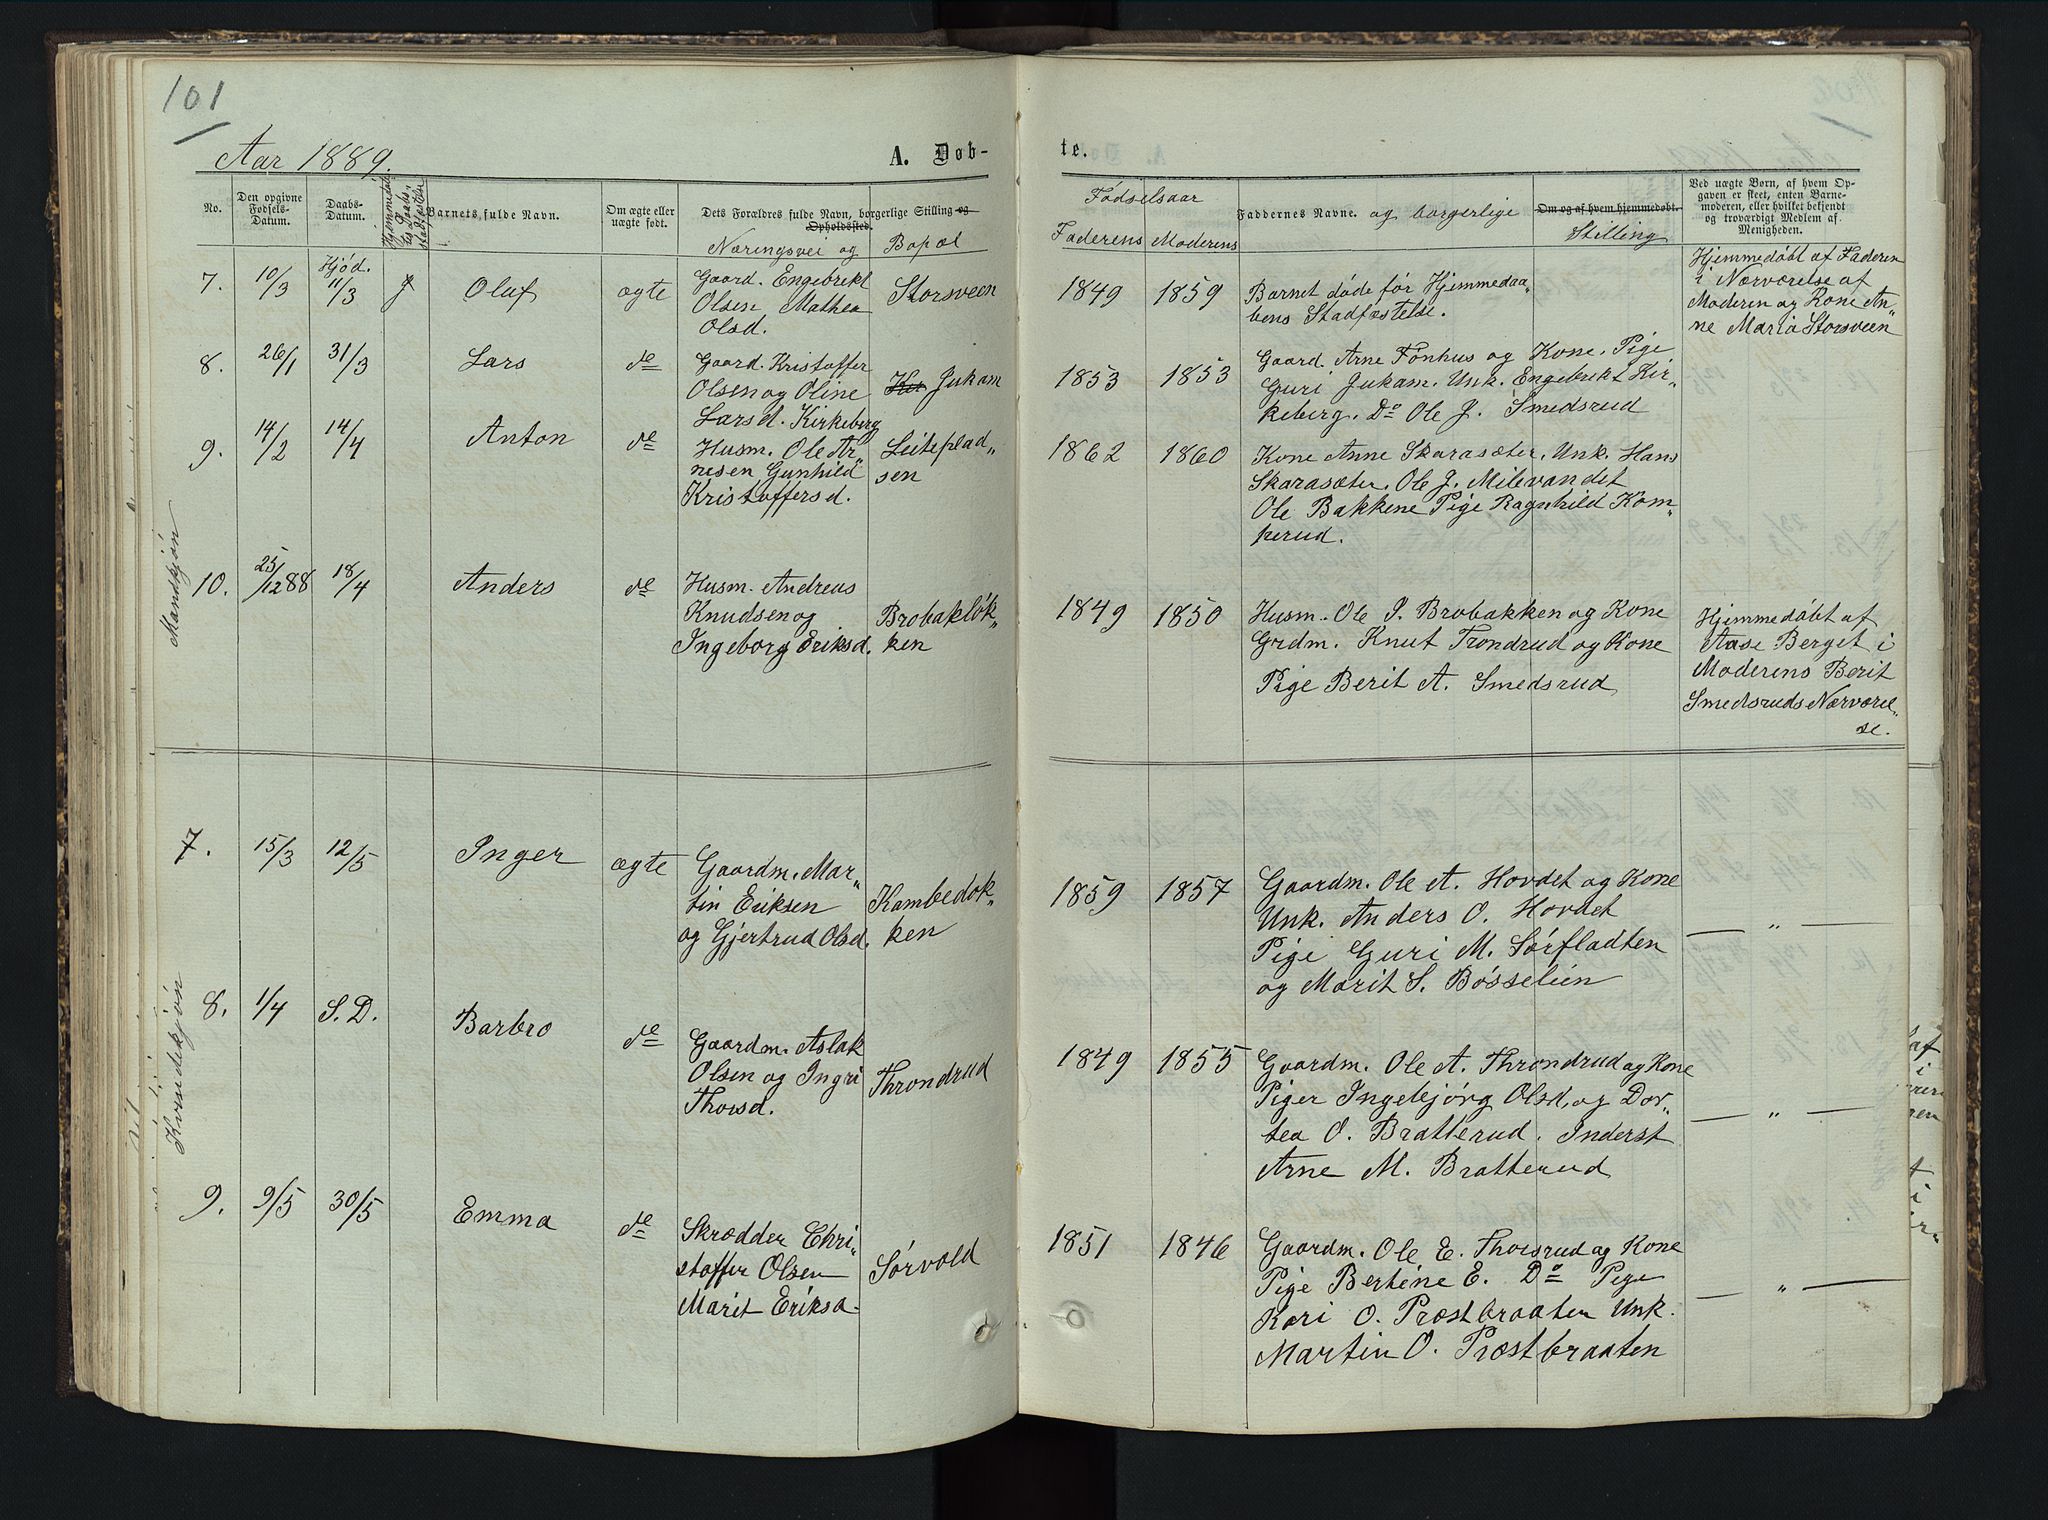 101
Aar 1889.
A. Døb-
te.
No.
Den opgivne Fødsels-Datum.
Daabs-Datum.
Hjemmedaab
Daabs-
stadfæstelse
Barnets fulde Navn.
Om ægte eller uægte født.
Dets Forældres fulde Navn, borgerlige Stilling og Opholdssted.
Næringsvei og Bopæl
Fødselsaar
Faderens Moderens
Faddernes Navne. og borgerlige Stilling
Om og af hvem hjemmedøbt.
Ved uægte Børn, af hvem Op-
gaven er skeet, enten Barne-
moderen, eller hvilket bekjendt
og troværdigt Medlem af
Menigheden.
Mandkjøn
7. 10/3 Hjød. 11/3 J Oluf ægte
Gaard. Engebrekt
Olsen Mathea
Olsd.
Storsveen
1849 1859
Barnet døde før Hjemmedaa„
bens Stadfæstelse.
Hjemmedøbt af Faderen
i Nærværelse af
Moderen og Kone An„
ne Maria Storsveen
8. 26/1 31/3 Lars do
Gaard. Kristoffer
Olsen og Oline
Larsd. Kirkeberg
Jukam
1853 1853
Gaard. Arne Fønhus og Kone. Pige
Guri Jukam. Unk. Engebrekt Kir„
keberg. Do Ole J. Smedsrud
9. 14/2 14/4 Anton do
Husm. Ole Ar„
nesen Gunhild
Kristoffersd.
Leiteplad„
sen
1862 1860
Kone Anne Skarasæter. Unk. Hans
Skarasæter. Ole J. Milevandet
Ole Bakkene Pige Ragnhild Kom„
perud.
10. 25/12 88 18/4 Anders do
Husm. Andreas
Knudsen og
Ingeborg Eriksd.
Brobakløk„
ken
1849 1850
Husm. Ole P. Brobakken og Kone
Grdm. Knut Trondrud og Kone
Pige Berit A. Smedsrud
Hjemmedøbt af
Aase Berget i
Moderens Berit
Smedsruds Nærværel„
se.
Kvindekjøn
7. 15/3 12/5 Inger ægte
Gaardm. Mar„
tin Eriksen
og Gjertrud Olsd.
Kambedok„
ken
1859 1857
Gaardm. Ole A. Hovdet og Kone
Unk. Anders O. Hovdet
Pige Guri M. Sørfladten
og Marit S. Bøsselien
— „ —
8. 1/4 S. D. Barbro do
Gaardm. Aslak
Olsen og Ingri
Thorsd.
Throndrud
1849 1855
Gaardm. Ole A. Throndrud og Kone
Piger Ingebjørg Olsd, og Dor„
tea O. Bratterud. Inderst
Arne M. Bratterud
— „ —
9. 9/5 30/5 Emma do
Skrædder Chri„
stoffer Olsen
Marit Eriksd.
Sørvold
1851 1846
Gaardm. Ole E. Thorsrud og Kone
Pige Bertine E. Do Pige
Kari O. Præstbraaten Unk.
Martin O. Præstbraaten
— „ —